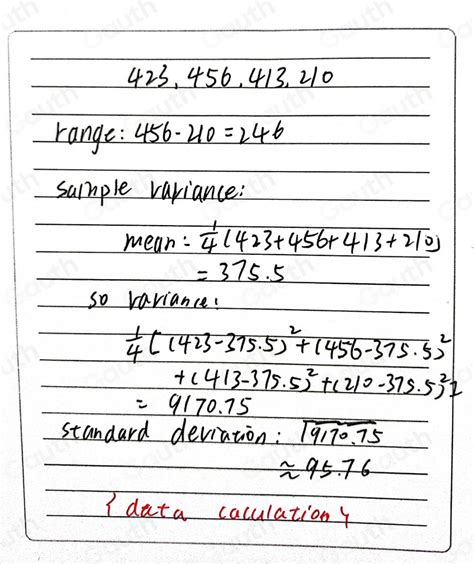 423, 456, 413, 210
range: 456-210 = 246
sample variance:
mean = 1/4 (423+456+413+210)
= 375.5
so variance:
1/4 [(423-375.5)² + (456-375.5)²
+ (413-375.5)² + (210-375.5)²]
= 9170.75
standard deviation: √9170.75
≈ 95.76
{data caculation}